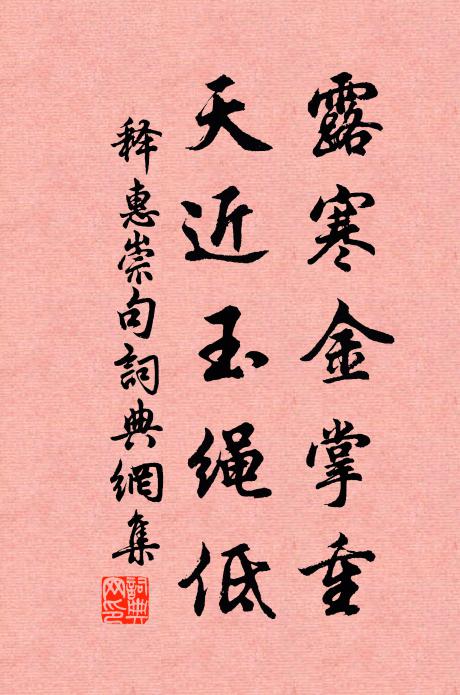 露寒金掌重
天近玉绳低
释惠崇句詞典網集
詞典网印